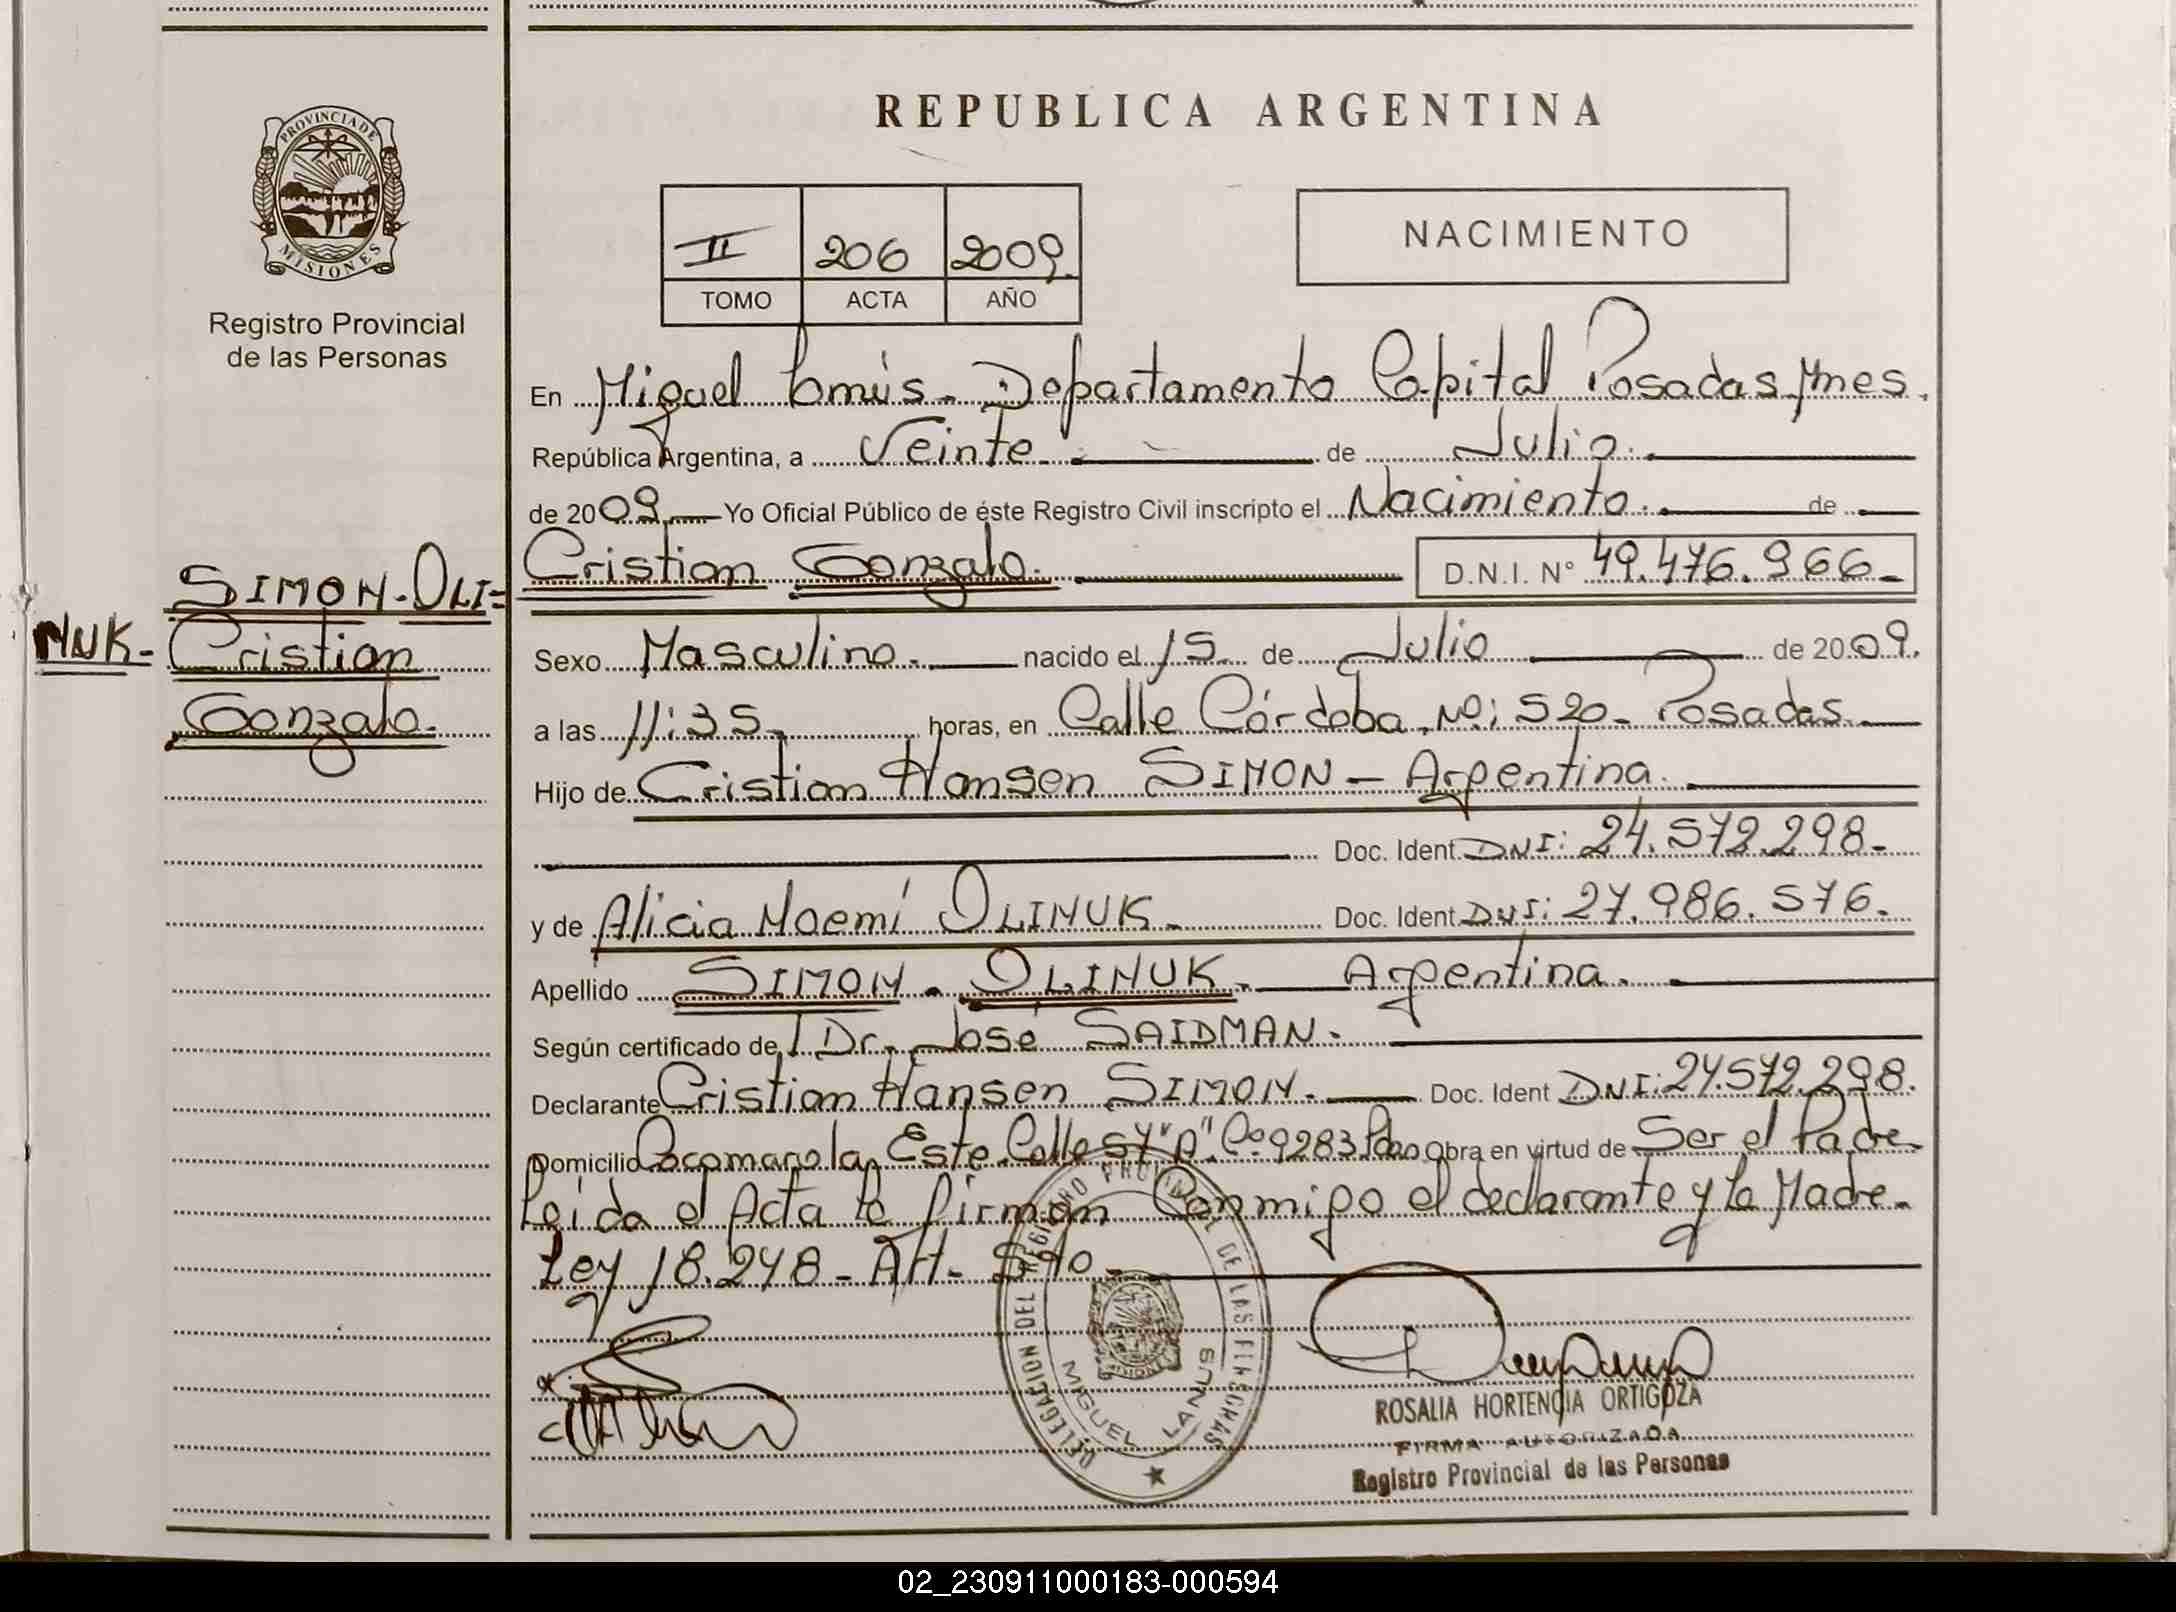 REPUBLICA ARGENTINA
PROVINCIA DE
MISIONES
Registro Provincial
de las Personas
II 206 2009.
TOMO ACTA AÑO
NACIMIENTO
En Miguel Lanús - Departamento Capital Posadas Mnes.
República Argentina, a Veinte. de Julio.
de 2009. Yo Oficial Público de éste Registro Civil inscripto el Nacimiento. de
SIMON-OLI=
NUK-
Cristian
Gonzalo.
Cristian Gonzalo. D.N.I. N° 49.476.966-
Sexo Masculino. nacido el 15 de Julio de 2009.
a las 11:35 horas, en Calle Córdoba. Nº: 520- Posadas.
Hijo de Cristian Hansen SIMON - Argentina.
Doc. Ident. DNI: 24.572.298-
y de Alicia Noemí OLINUK. Doc. Ident. DNI: 27.986.576.
Apellido SIMON - OLINUK. Argentina.
Según certificado de Dr. José SAIDMAN.
Declarante Cristian Hansen SIMON. Doc. Ident DNI: 24.572.298.
Domicilio Cocomarola Este Calle 57 "A" Cº 9283 Pdas Obra en virtud de Ser el Padre-
Leída el Acta la firman Conmigo el declarante y la Madre-
Ley 18.248 - Art. 5to.
DELEGACION DEL REGISTRO PROVINCIAL DE LAS PERSONAS
MIGUEL LANUS
ROSALIA HORTENCIA ORTIGOZA
FIRMA AUTORIZADA
Registro Provincial de las Personas
02_230911000183-000594